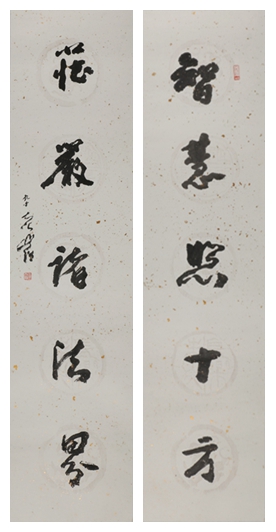 智慧照十方
莊嚴諸法界